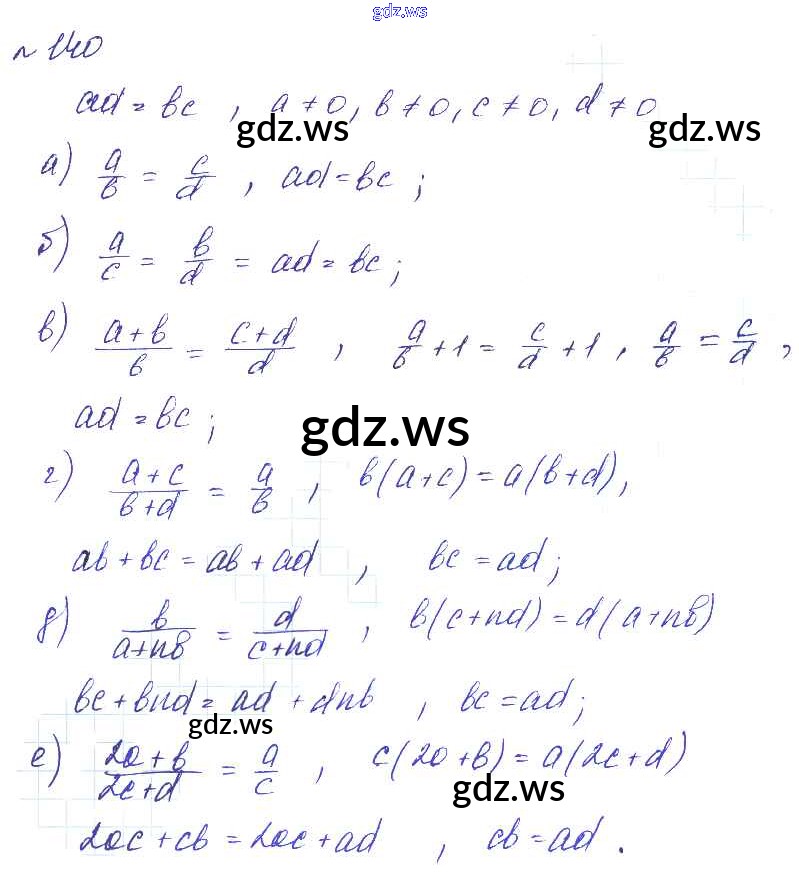 gdz.ws
№ 140
ad = bc , a ≠ 0, b ≠ 0, c ≠ 0, d ≠ 0
gdz.ws gdz.ws
а) a/b = c/d , ad = bc ;
б) a/c = b/d = ad = bc ;
в) (a+b)/b = (c+d)/d , a/b + 1 = c/d + 1 , a/b = c/d ,
ad = bc ;
gdz.ws
г) (a+c)/(b+d) = a/b , b(a+c) = a(b+d),
ab + bc = ab + ad , bc = ad ;
д) b/(a+nb) = d/(c+nd) , b(c+nd) = d(a+nb)
bc + bnd = ad + dnb , bc = ad ;
gdz.ws
е) (2a+b)/(2c+d) = a/c , c(2a+b) = a(2c+d)
gdz.ws
2ac + cb = 2ac + ad , cb = ad .